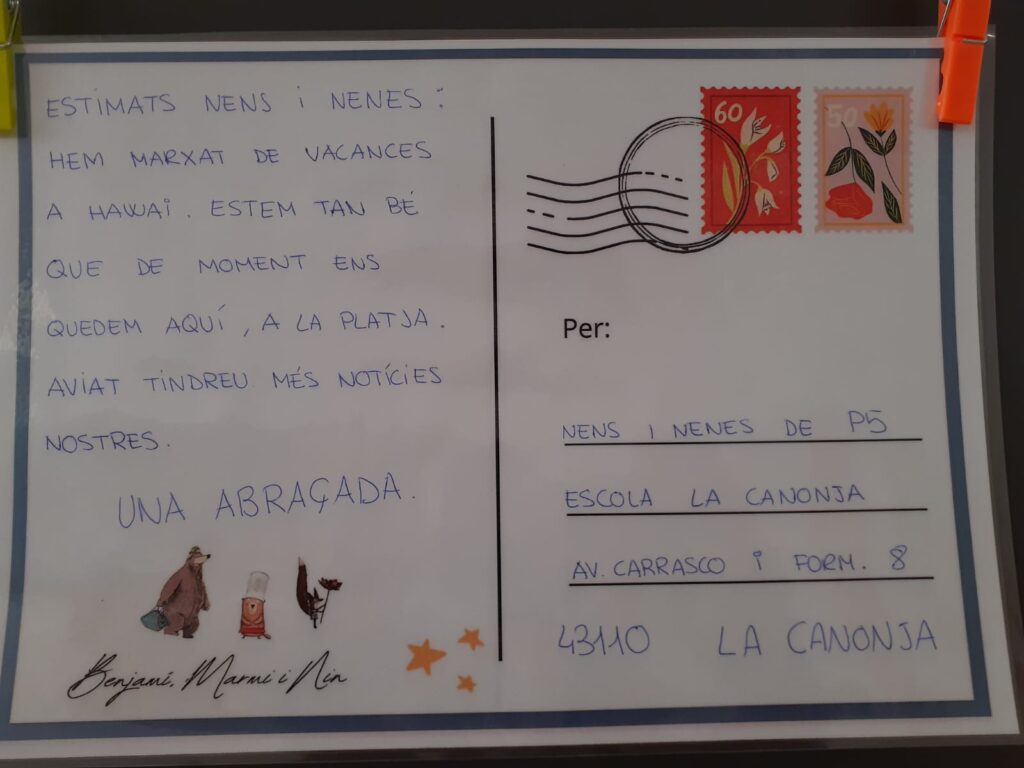 ESTIMATS NENS i NENES:
HEM MARXAT DE VACANCES
A HAWAÏ. ESTEM TAN BÉ
QUE DE MOMENT ENS
QUEDEM AQUÍ, A LA PLATJA.
AVIAT TINDREU MÉS NOTÍCIES
NOSTRES.
UNA ABRAÇADA.
Benjamí, Marmi i Nin
60
50
Per:
NENS i NENES DE P5
ESCOLA LA CANONJA
AV. CARRASCO i FORM. 8
43110 LA CANONJA